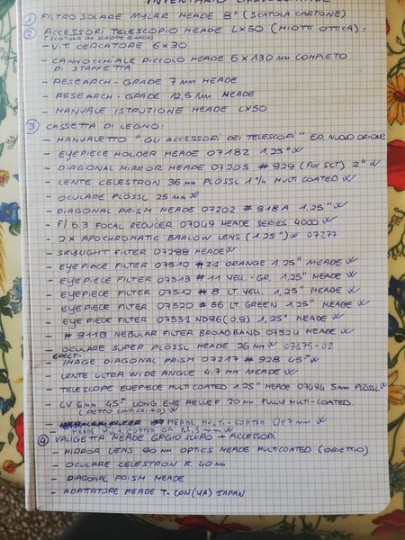 ① FILTRO SOLARE MYLAR MEADE 8" (SCATOLA CARTONE)
② ACCESSORI TELESCOPIO MEADE LX50 (MIOTTI OTTICA):
- VITI CERCATORE 6x30
- CANNOCCHIALE PICCOLO MEADE 6x130 mm COMPLETO
DI STAFFETTA
- RESEARCH-GRADE 7mm MEADE
- RESEARCH-GRADE 12,6mm MEADE
- MANUALE ISTRUZIONE MEADE LX50
③ CASSETTA DI LEGNO:
- MANUALETTO "GLI ACCESSORI DEI TELESCOPI" ED. NUOVO ORIONE
- EYEPIECE HOLDER MEADE 07182 1.25"
- DIAGONAL MIRROR MEADE 07205 #929 (For SCT) 2"
- LENTE CELESTRON 36mm PLÖSSL 1"1/4 MULTI COATED
- OCULARE PLÖSSL 25mm
- DIAGONAL PRISM MEADE 07202 #918A 1.25"
- f/6.3 FOCAL REDUCER 07049 MEADE SERIES 4000
- 2X APOCHROMATIC BARLOW LENS (1.25") 07277
- SKYLIGHT FILTER 07288 MEADE
- EYEPIECE FILTER 07510 #21 ORANGE 1.25" MEADE
- EYEPIECE FILTER 07513 #11 YELL.-GR. 1.25" MEADE
- EYEPIECE FILTER 07512 #8 LT. YELL. 1.25" MEADE
- EYEPIECE FILTER 07520 #56 LT GREEN 1.25" MEADE
- EYE PIECE FILTER 07531 ND96 (0.9) 1.25" MEADE
- #911B NEBULAR FILTER BROADBAND 07524 MEADE
- OCULARE SUPER PLÖSSL MEADE 26mm 07175-02
ERECT-
- IMAGE DIAGONAL PRISM 07217 #928 45°
- LENTE ULTRA WIDE ANGLE 4.7mm MEADE
- TELESCOPE EYEPIECE MULTICOATED 1.25" MEADE 07494 5mm PLÖSSL
- LV 6mm 45° LONG EYE RELIEF 20mm FULLY MULTI-COATED
- MEADE MULTI-COATED
④ VALIGETTA MEADE GRIGIO SCURO + ACCESSORI
- MIRROR LENS 90mm OPTICS MEADE MULTICOATED (OBIETTIVO)
- OCULARE CELESTRON K. 60mm
- DIAGONAL PRISM MEADE
- ADATTATORE MEADE T-CON(YA) JAPAN